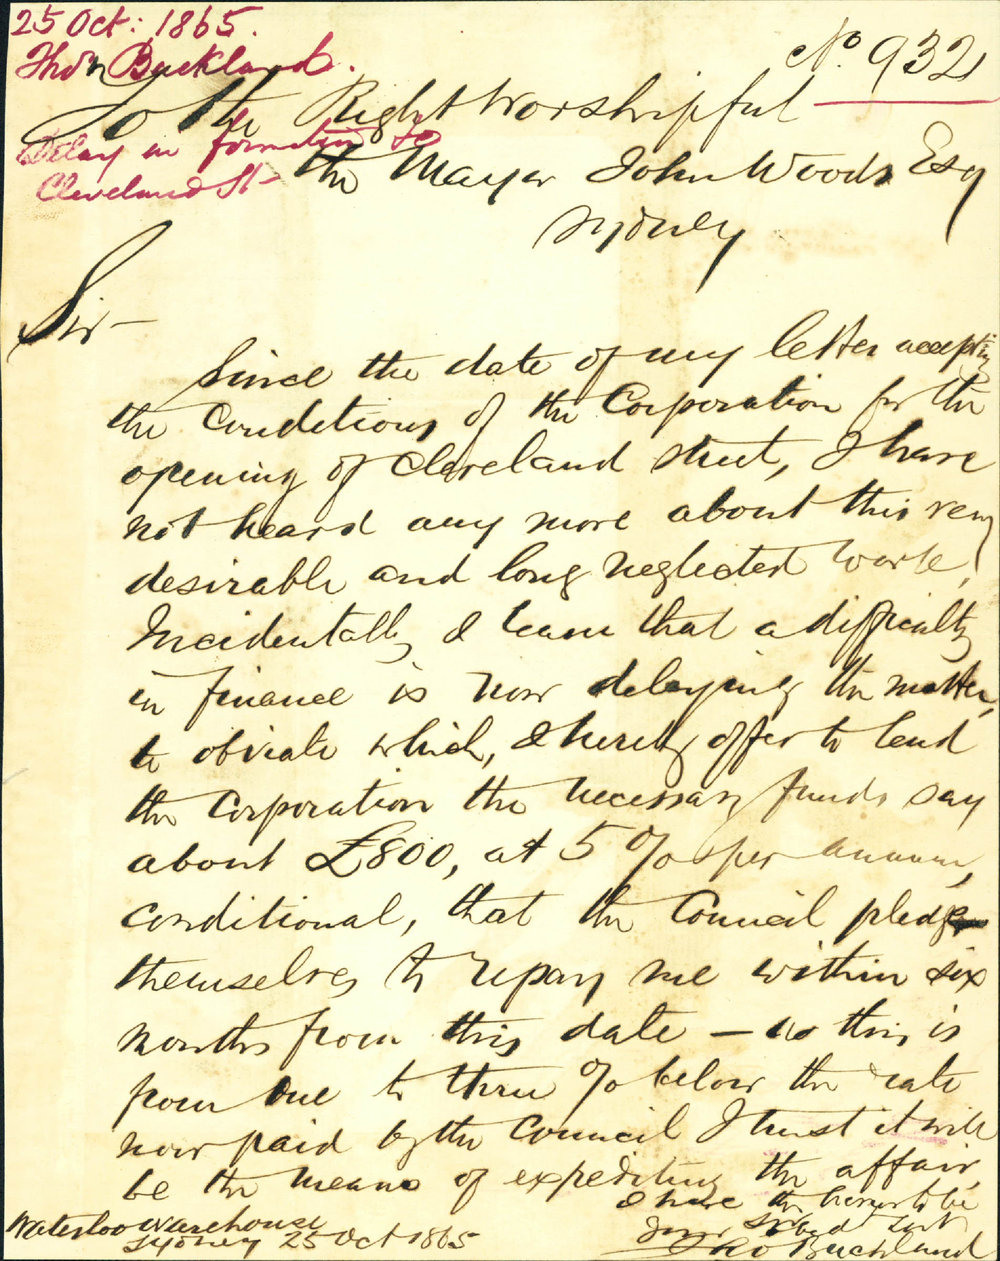 25 Oct: 1865.
Thos Buckland.
No. 932
To the Right Worshipful
Delay in formation to
Cleveland St
the Mayor John Woods Esq
Sydney
Sir
Since the date of my letter accepting
the conditions of the Corporation for the
opening of Cleveland street, I have
not heard any more about this very
desirable and long neglected work,
Incidentally I learn that a difficulty
in finance is now delaying the matter,
to obviate which, I hereby offer to lend
the Corporation the necessary funds say
about £800, at 5 % per annum,
conditional, that the Council pledge
themselves to repay me within six
months from this date – as this is
from one to three % below the rate
now paid by the Council I trust it will
be the means of expediting the affair,
I have the honor to be
Your Obedt Servt
Thos Buckland
Waterloo Warehouse
Sydney 25 Oct 1865